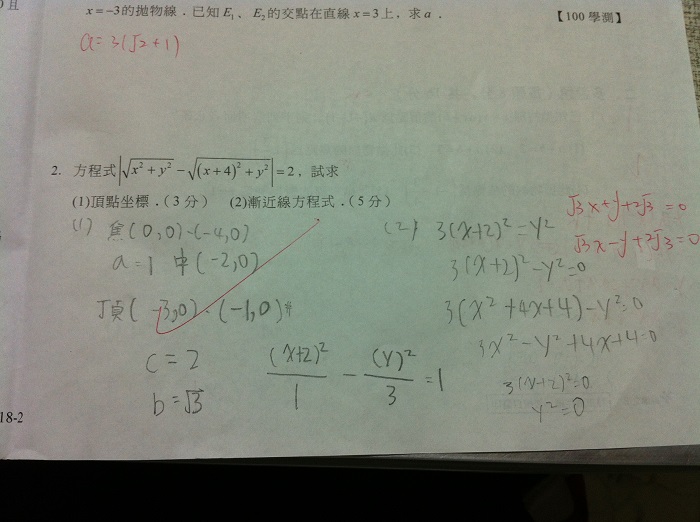 x=-3的拋物線．已知E₁、E₂的交點在直線x=3上，求a．【100 學測】
a=3(√2+1)
2. 方程式|√(x²+y²)-√((x+4)²+y²)|=2，試求
(1)頂點坐標．(3 分) (2)漸近線方程式．(5 分)
(1) 焦(0,0)、(-4,0)
a=1 中(-2,0)
頂(-3,0)、(-1,0)#
c=2
b=√3
(x+2)²/1 - (y)²/3 =1
(2) 3(x+2)²=y²
3(x+2)²-y²=0
3(x²+4x+4)-y²=0
3x²-y²+4x+4=0
3(x+2)²=0
y²=0
√3x+y+2√3=0
√3x-y+2√3=0
18-2